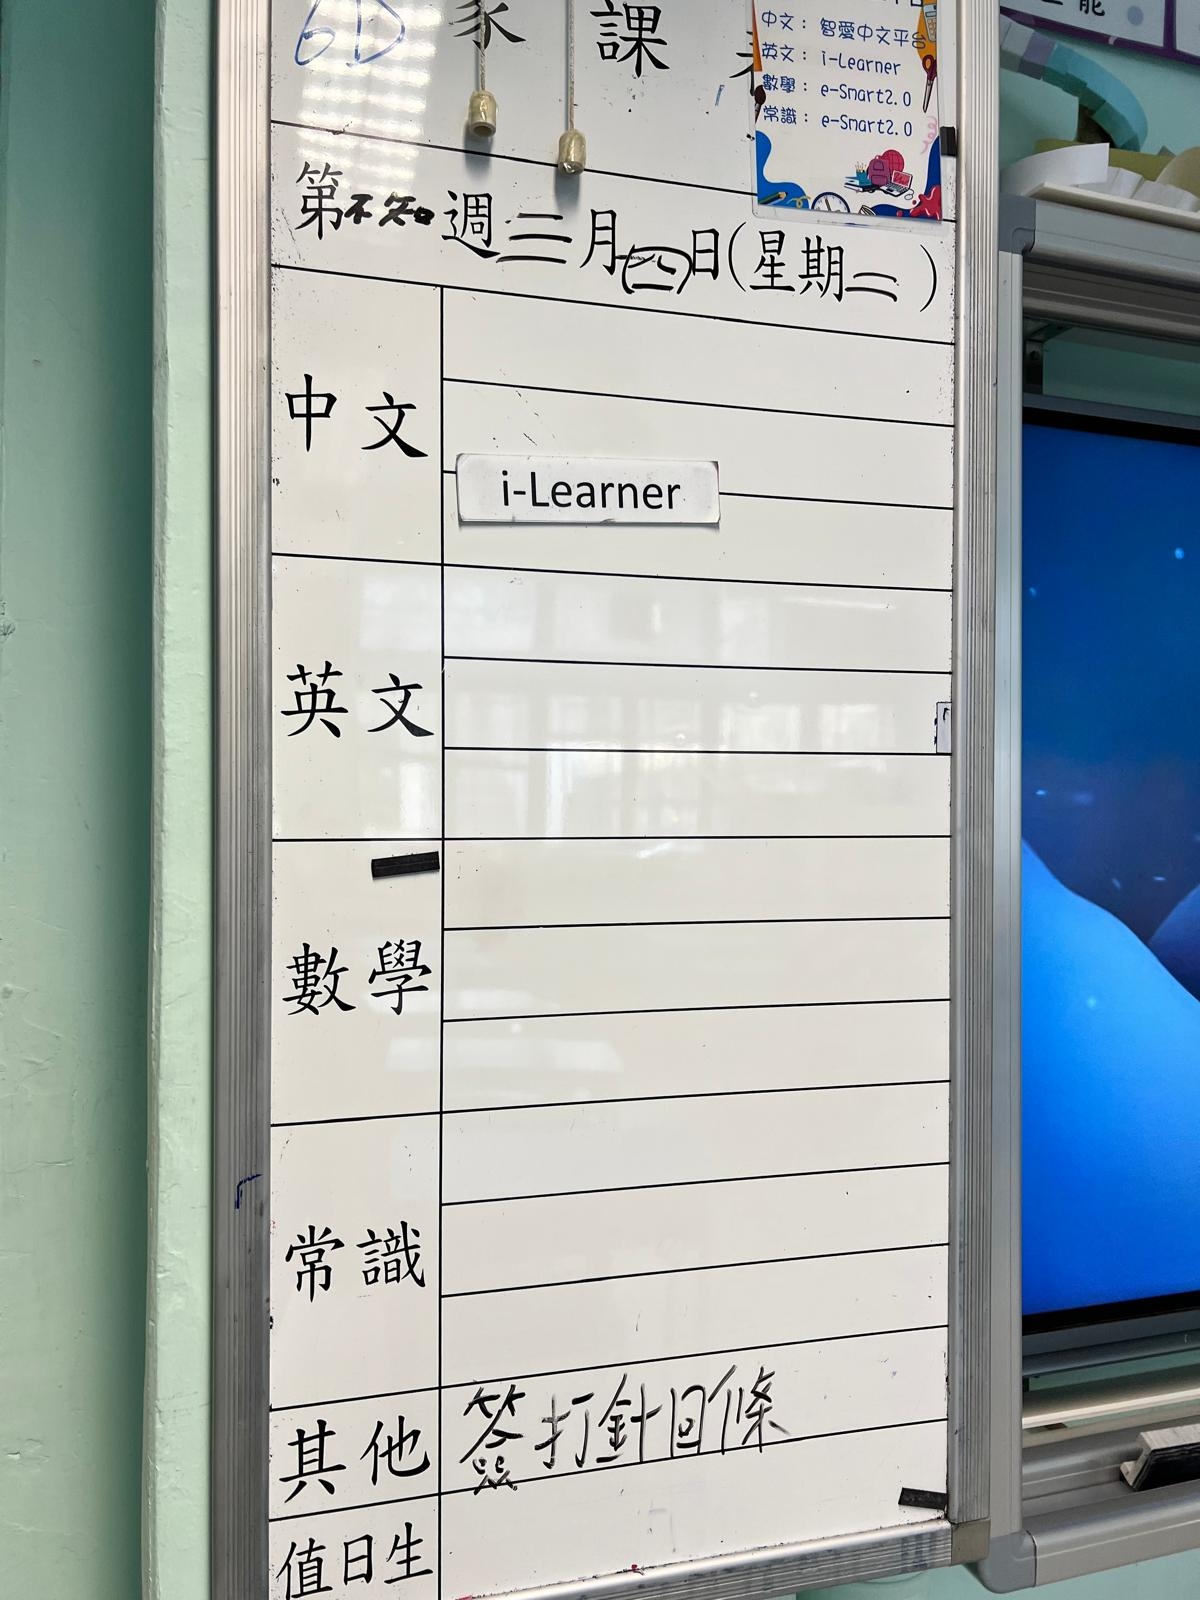 6D 家 課
中文：智愛中文平台
英文：i-Learner
數學：e-Smart2.0
常識：e-Smart2.0
第不知週三月四日(星期二)
中文
i-Learner
英文
數學
常識
其他 簽打針回條
值日生
能